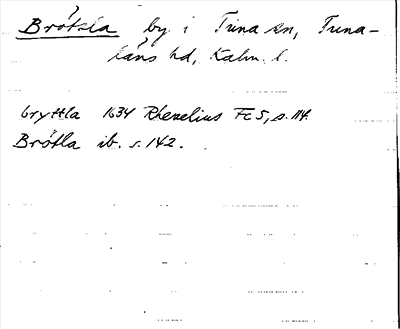 Brötsla by i Tuna sn, Tuna-
läns hd, Kalm. l.
bryttla 1634 Rhezelius Fc5, s. 114.
Brötla ib. s. 142.